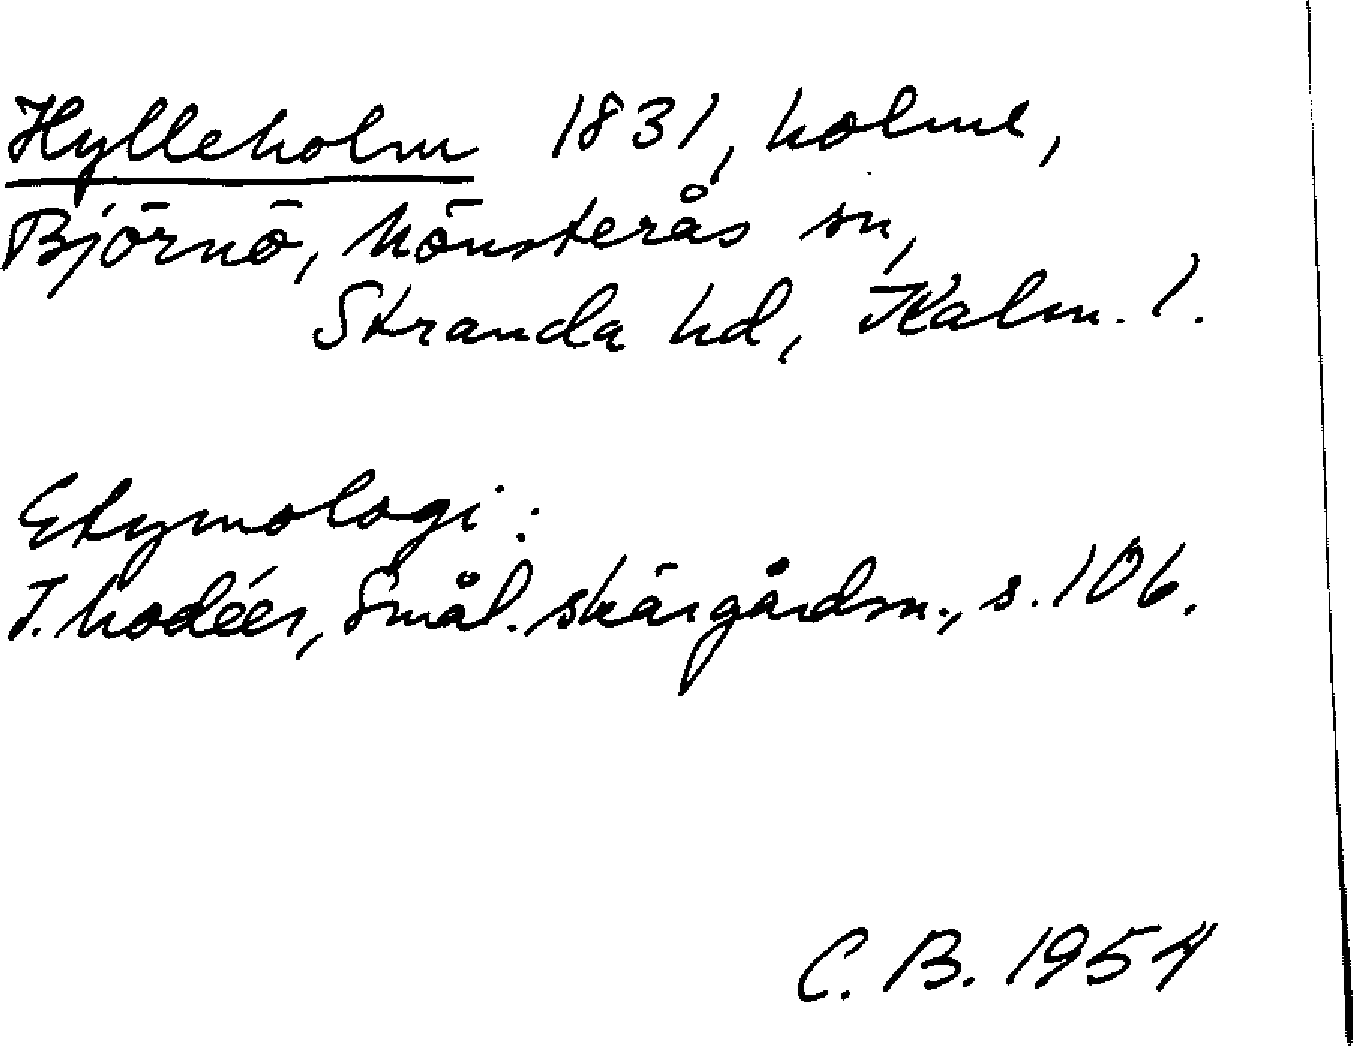 Hylleholm 1831, holme,
Björnö, Mönsterås sn,
Stranda hd, Kalm. l.
Etymologi:
I. Modéer, Smål. skärgårdsn., s. 106.
C. B. 1954